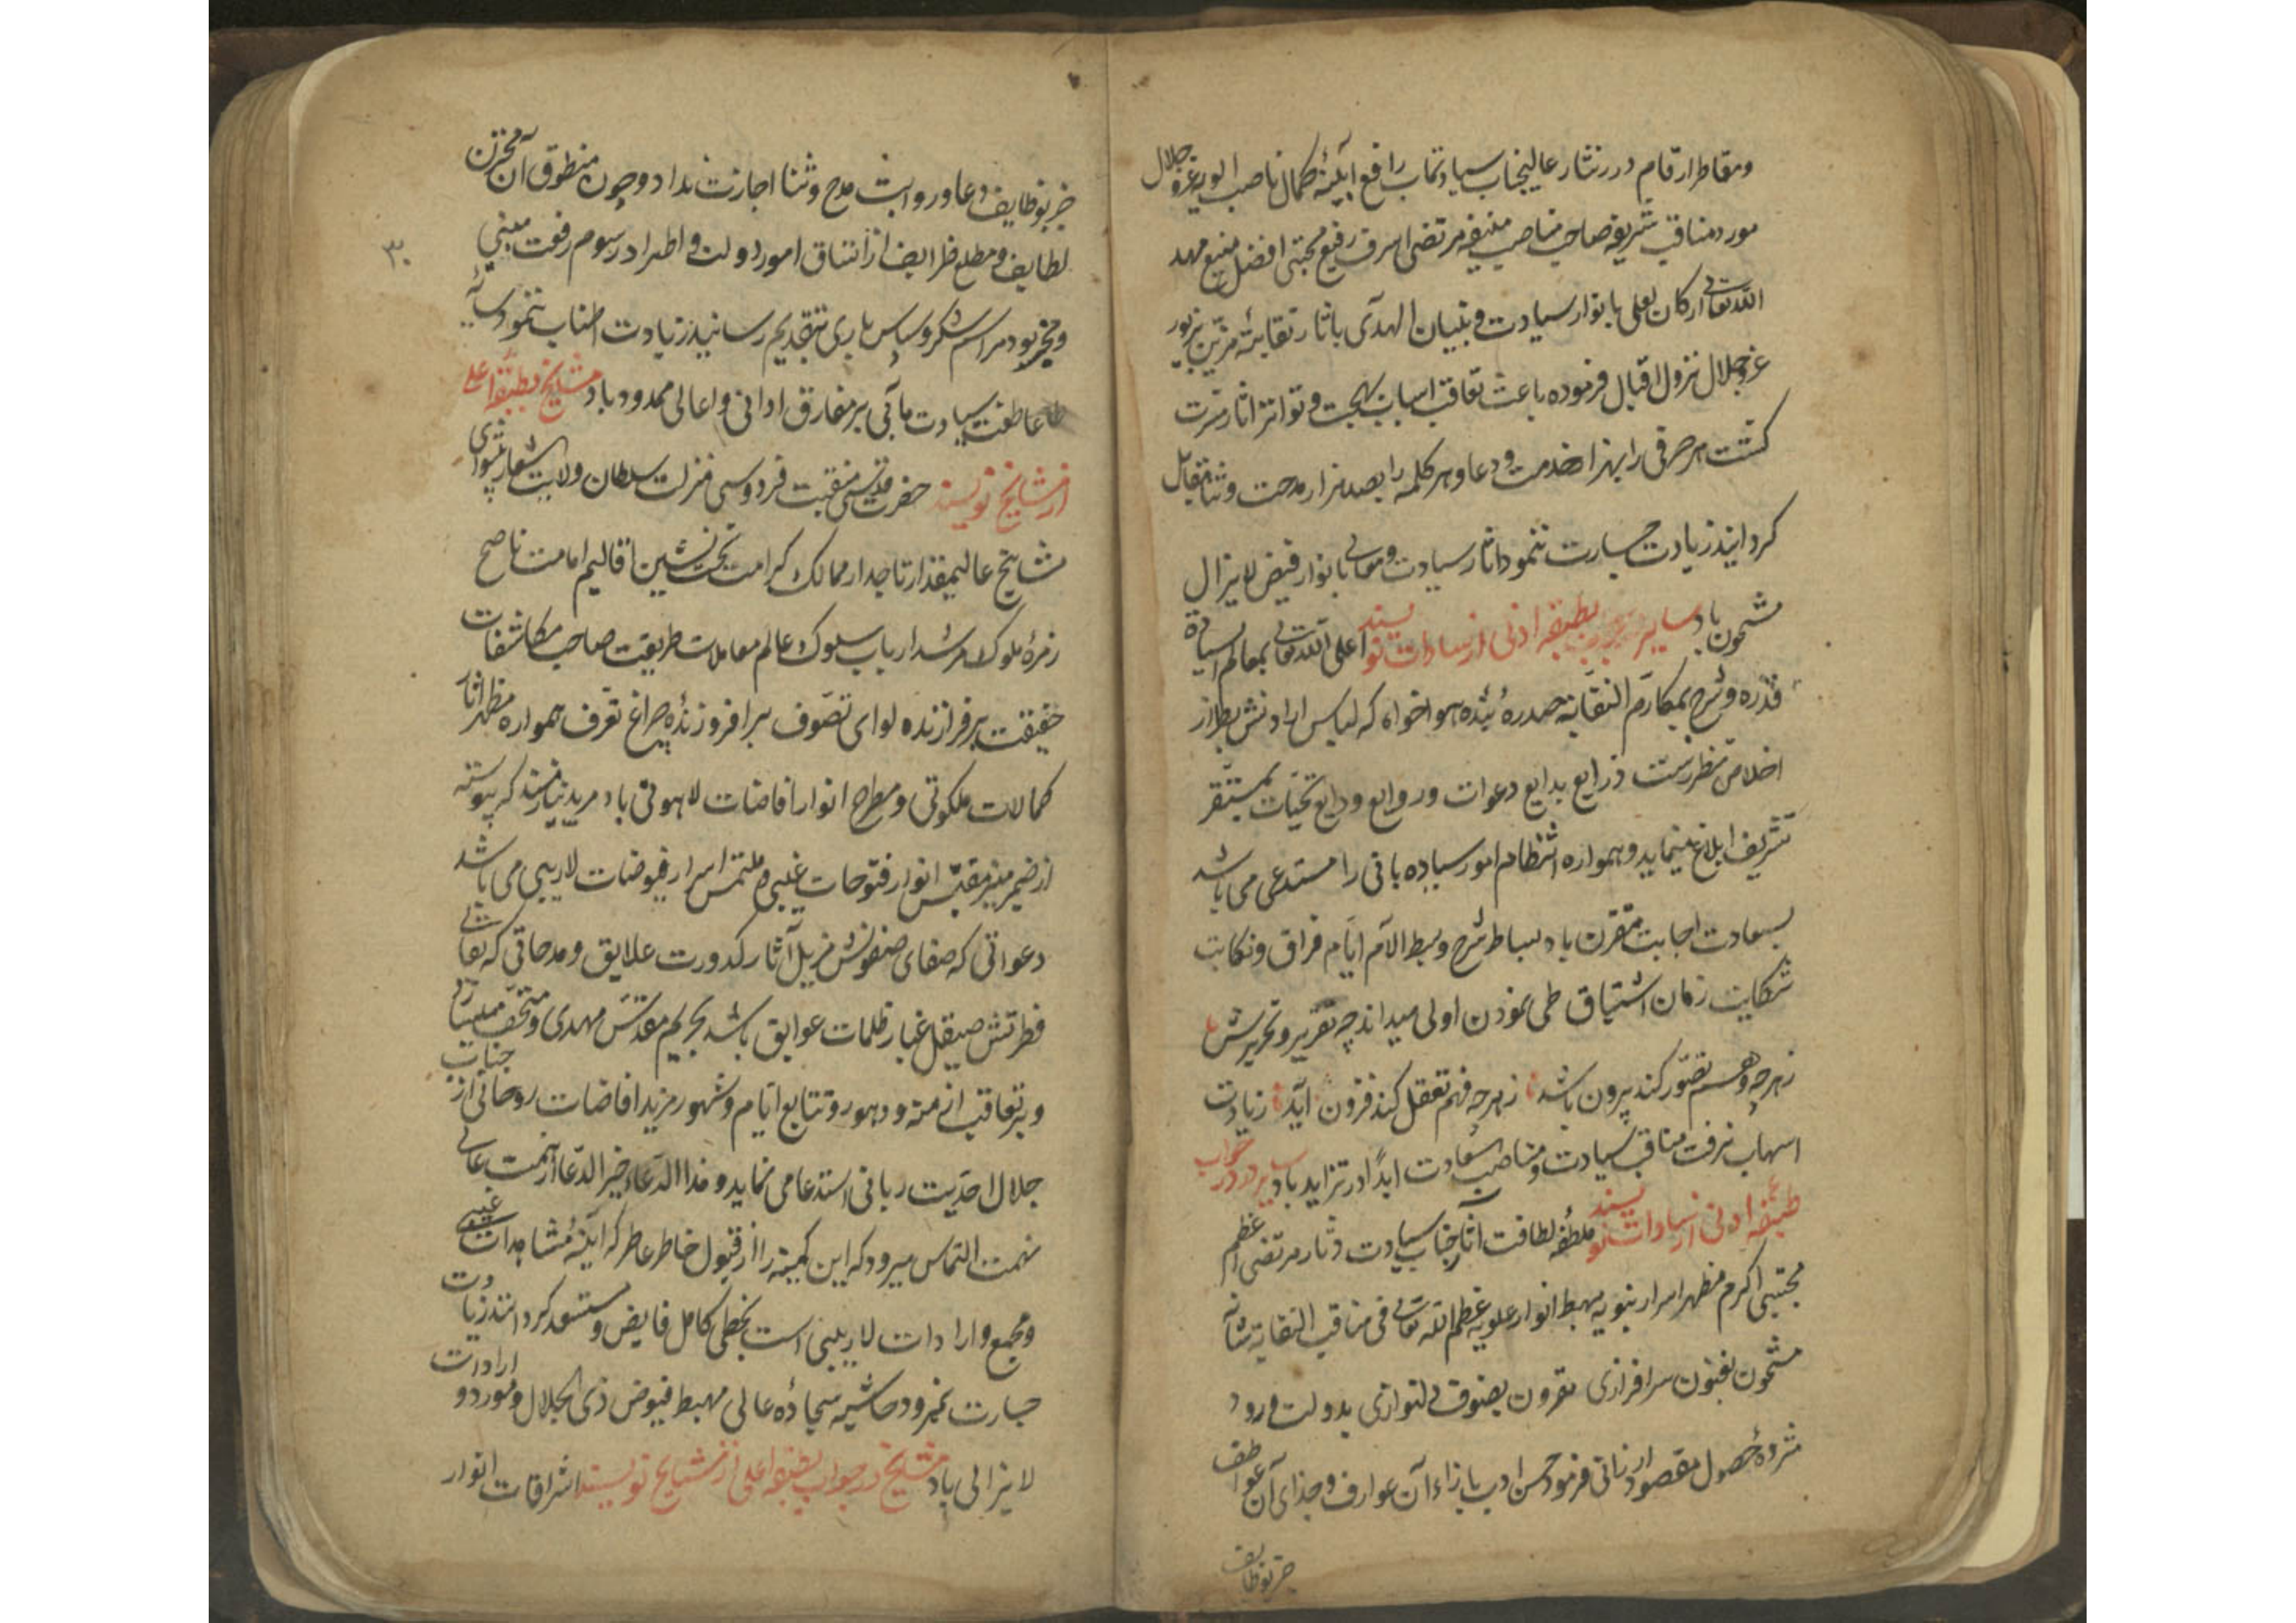 ومقاطر ارقام درر نثار عالیجناب سیادتمآب رافع ابنیهٔ کمال ناصب الویهٔ عز و جلال
مورد مناقب شریفه صاحب مناصب منیفه مرتضی اشرف رفیع مجتبی افضل منیع مهد
الله تعالی ارکان العلی بانوار سیادت و بنیان الهدی باثار نقابته مزین بزیور
عز و جلال نزول اقبال فرموده باعث تعاقب اسباب بهجت و تواتر اثار مسرت
کشت هر حرفی را بهزار خدمت و دعا و هر کلمه را بصد هزار مدحت و ثنا مقابل
کردانید زیادت جسارت ننمود اثار سیادت و معالی بانوار فیض لایزال
مشحون باد سایر بطبقه ادنی از سادات نویسند اعلی الله تعالی بمعالم السیادة
قدره و شرح بمکارم النقابة صدره بنده هواخواه که لباس ارادتش بطراز
اخلاص مطرزست ذرایع بدایع دعوات و روایع ودایع تحیات بمستقر
تشریف ابلاغ مینماید و همواره انتظام امور سیاده بانی را مستدعی می باشد
بسعادت اجابت مقرون باد بساط شرح و بسط الام ایام فراق و نکایت
شکایت زمان اشتیاق طی نمودن اولی میداند چه تقریر و تحریرش
زهرچه وهم تصور کند برون باشد زهرچه فهم تعقل کند فزون اید زیادت
اسهاب نرفت مناقب سیادت و مناصب سعادت ابدا در تزاید باد سیر در جواب
طبقه ادنی از سادات نویسند ملطفه لطافت اثار جناب سیادت دثار مرتضی اعظم
مجتبی اکرم مظهر اسرار نبویه مهبط انوار علویه عظم الله تعالی فی مناقب النقابة شانه
مشحون بفنون سرافرازی مقرون بصنوف دلنوازی بدولت ورود
مژدهٔ حصول مقصود ارزانی فرمود حسن ادب بازاء آن عوارف و جذای آن عواطف
جز بوظایف
جز بوظایف دعا و رواتب مدح و ثنا اجازت نداد و چون منطوق آن مخزن
۳۰
لطایف و مطلع ظرایف از اتساق امور دولت و اطراد رسوم رفعت مبنی
و مخبر بود مراسم شکر و سپاس باری بتقدیم رسانید زیادت اطناب ننمود سایهٔ
عاطفت سیادت مآبی بر مفارق ادانی و اعالی ممدود باد مشایخ بطبقه اعلی
از مشایخ نویسند حضرت قدسی منقبت فردوسی منزلت سلطان ولایت شعار پیشوای
مشایخ عالیمقدار تاجدار ممالک کرامت تخت نشین اقالیم امامت ناصح
زمرهٔ ملوک مرشد ارباب سلوک عالم معاملات طریقت صاحب مکاشفات
حقیقت برفرازنده لوای تصوف برافروزندهٔ چراغ تعرف همواره مظهر اثار
کمالات ملکوتی و مطرح انوار افاضات لاهوتی باد مرید نیازمند که پیوسته
از ضمیر منیر مقتبس انوار فتوحات غیبی و ملتمس اسرار فیوضات لاریبی می باشد
دعواتی که صفای صفوتش مزیل آثار کدورت علایق و مدحاتی که نقای
فطرتش صیقل غبار ظلمات عوایق باشد بحریم مقدس مهدی و متحف میسازد
و بر تعاقب ازمنه و دهور و تتابع ایام و شهور مزید افاضات روحانی از جناب
جلال احدیت ربانی استدعا می نماید و هذا الدعاء خیر الدعا از همت عالی
نهمت التماس میرود که این کمینه را از قبول خاطر عاطر که آینهٔ مشاهدات غیبی
و مجمع واردات لاریبی است بحظی کامل فایض و مستسعد کردانند زیادت
جسارت نمیرود حاشیه سجادهٔ عالی مهبط فیوض ذی الجلال و مورد ارادات
لایزالی باد مشایخ در جواب بطبقه اعلی از مشایخ نویسند اشراقات انوار